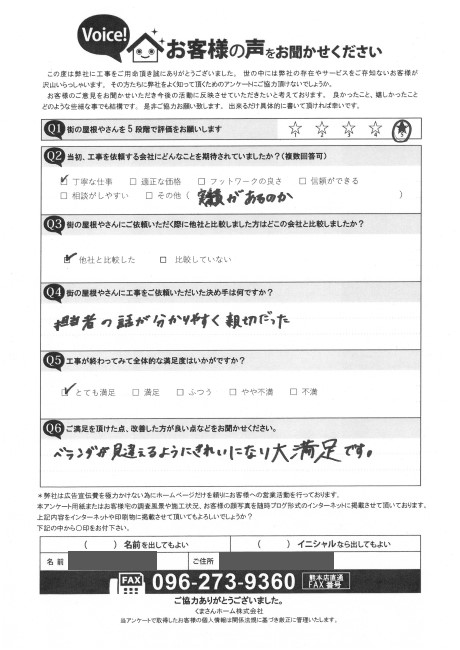 Voice!
お客様の声をお聞かせください
この度は弊社に工事をご用命頂き誠にありがとうございました。 世の中には弊社の存在やサービスをご存知ないお客様が
沢山いらっしゃいます。 その方たちに弊社をよく知って頂くためのアンケートにご協力頂けないでしょうか。
お客様のご意見をお聞かせいただき今後の活動に反映させていただきたいと考えております。 良かったこと、嬉しかったこと
どのような些細な事でも結構です。 是非ご協力お願い致します。 出来るだけ具体的に書いて頂ければ幸いです。
Q1 街の屋根やさんを5段階で評価をお願いします
☆ ☆ ☆ ☆ ★
1 2 3 4 5
Q2 当初、工事を依頼する会社にどんなことを期待されていましたか?(複数回答可)
☑ 丁寧な仕事 □ 適正な価格 □ フットワークの良さ □ 信頼ができる
□ 相談がしやすい □ その他( 実績があるのか )
Q3 街の屋根やさんにご依頼いただく際に他社と比較しました方はどこの会社と比較しましたか?
☑ 他社と比較した □ 比較していない
Q4 街の屋根やさんに工事をご依頼いただいた決め手は何ですか?
担当者の話が分かりやすく親切だった
Q5 工事が終わってみて全体的な満足度はいかがですか?
☑ とても満足 □ 満足 □ ふつう □ やや不満 □ 不満
Q6 ご満足を頂けた点、改善した方が良い点などをお聞かせください。
ベランダが見違えるようにきれいになり大満足です。
*弊社は広告宣伝費を極力かけない為にホームページだけを頼りにお客様への営業活動を行っております。
本アンケート用紙またはお客様宅の調査風景や施工状況、お客様の顔写真を随時ブログ形式のインターネットに掲載させて頂いております。
上記内容をインターネットや印刷物に掲載させて頂いてもよろしいでしょうか?
下記の中から〇印をお付下さい。
( ) 名前を出してもよい ( ) イニシャルなら出してもよい
名前 ご住所
FAX 096-273-9360 熊本店直通
FAX番号
ご協力ありがとうございました。
くまさんホーム株式会社
当アンケートで取得したお客様の個人情報は関係法規に基づき厳正に管理いたします。